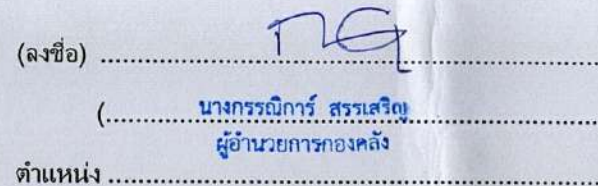 (ลงชื่อ) ........................................
(........ นางกรรณิการ์ สรรเสริญ ........
ผู้อำนวยการกองคลัง
ตำแหน่ง ........................................